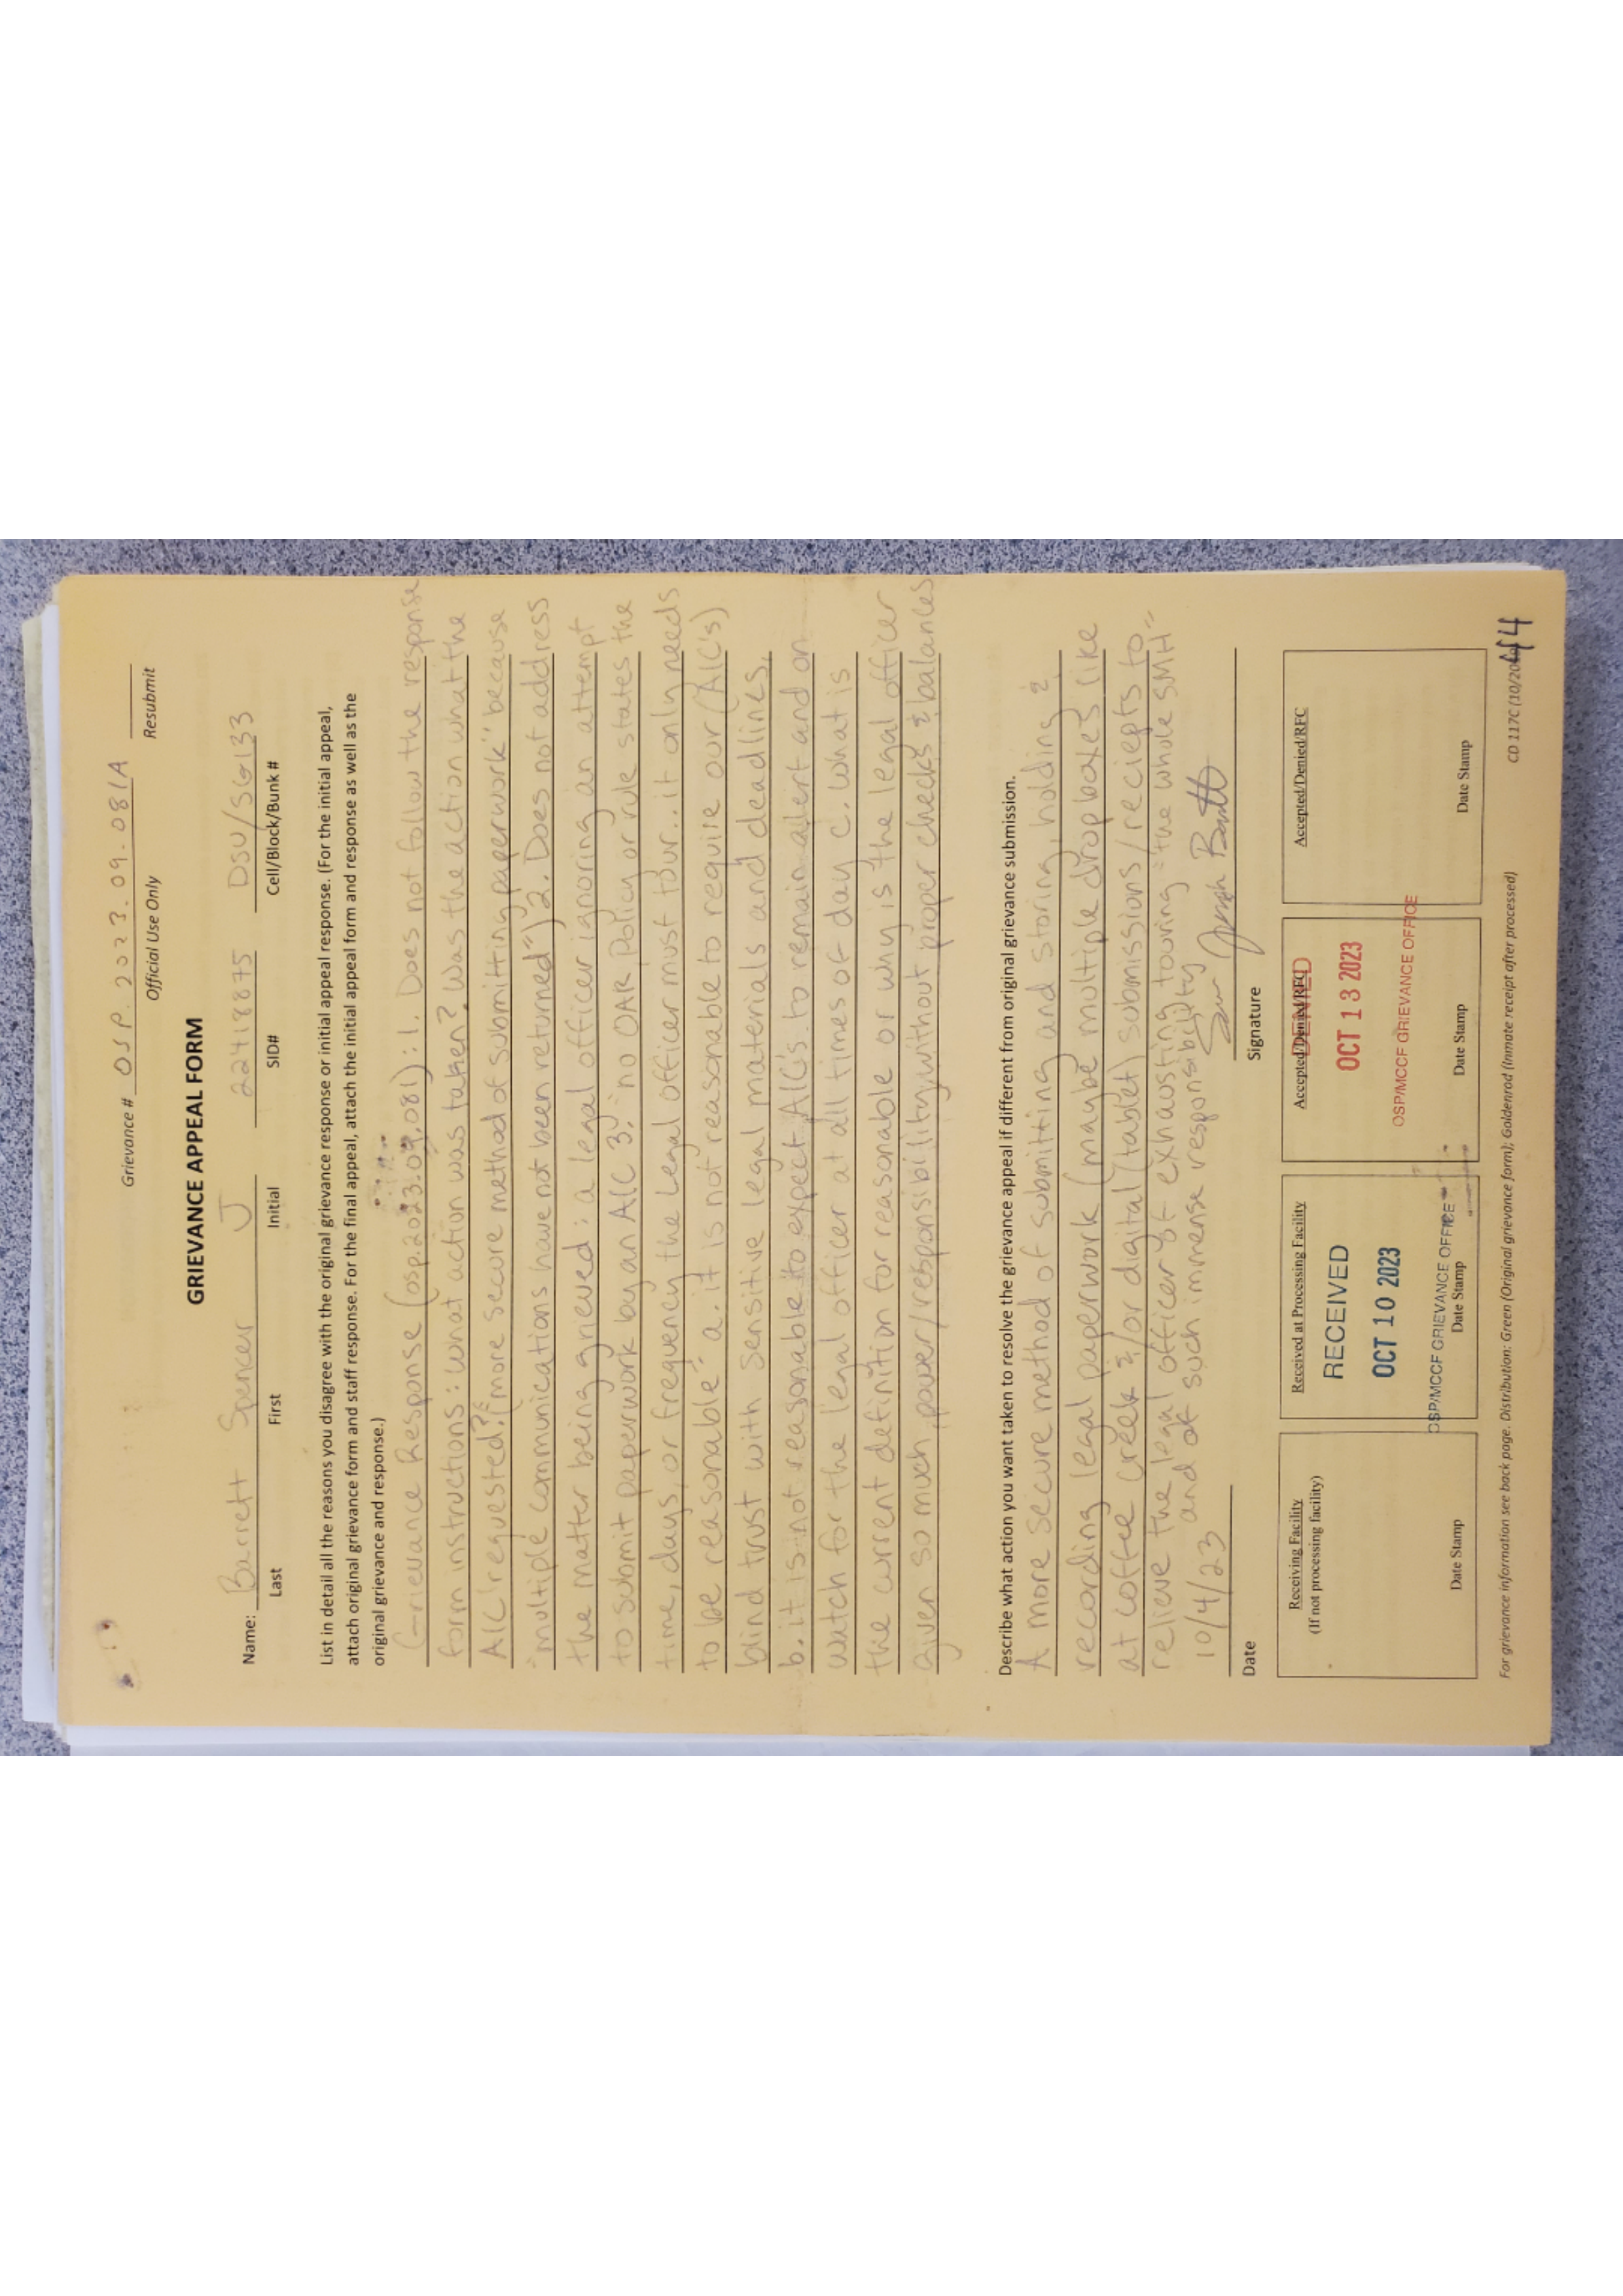 Grievance # OSP.2023.09.081A
Official Use Only Resubmit
GRIEVANCE APPEAL FORM
Name: Barrett Spencer J 22418875 DSU/SG133
Last First Initial SID# Cell/Block/Bunk #
List in detail all the reasons you disagree with the original grievance response or initial appeal response. (For the initial appeal,
attach original grievance form and staff response. For the final appeal, attach the initial appeal form and response as well as the
original grievance and response.)
Grievance Response (osp.2023.09.081): 1. Does not follow the response
form instructions: what action was taken? Was the action what the
AIC requested? (more secure method of submitting paperwork" because
"multiple communications have not been returned") 2. Does not address
the matter being grieved: a legal officer ignoring an attempt
to submit paperwork by an AIC 3. "no OAR Policy or rule states the
time, days, or frequency the legal officer must tour.. it only needs
to be reasonable" a. it is not reasonable to require our (AIC's)
blind trust with sensitive legal materials and deadlines,
b. it is not reasonable to expect AICs to remain alert and on
watch for the legal officer at all times of day c. what is
the current definition for reasonable or why is the legal officer
Given so much power/responsibility without proper checks & balances
Describe what action you want taken to resolve the grievance appeal if different from original grievance submission.
A more secure method of submitting and storing, holding &
recording legal paperwork (maybe multiple dropboxes like
at coffee creek &/or digital (tablet) submissions/reciepts to
relieve the legal officer of exhausting touring "the whole SMH"
and of such immense responsibility
10/4/23
Date Signature
Receiving Facility
(If not processing facility)
Date Stamp
Received at Processing Facility
RECEIVED
OCT 10 2023
OSP/MCCF GRIEVANCE OFFICE
Date Stamp
Accepted/Denied/RFC
DENIED
OCT 13 2023
OSP/MCCF GRIEVANCE OFFICE
Date Stamp
Accepted/Denied/RFC
Date Stamp
For grievance information see back page. Distribution: Green (Original grievance form); Goldenrod (Inmate receipt after processed)
CD 117C (10/20
44